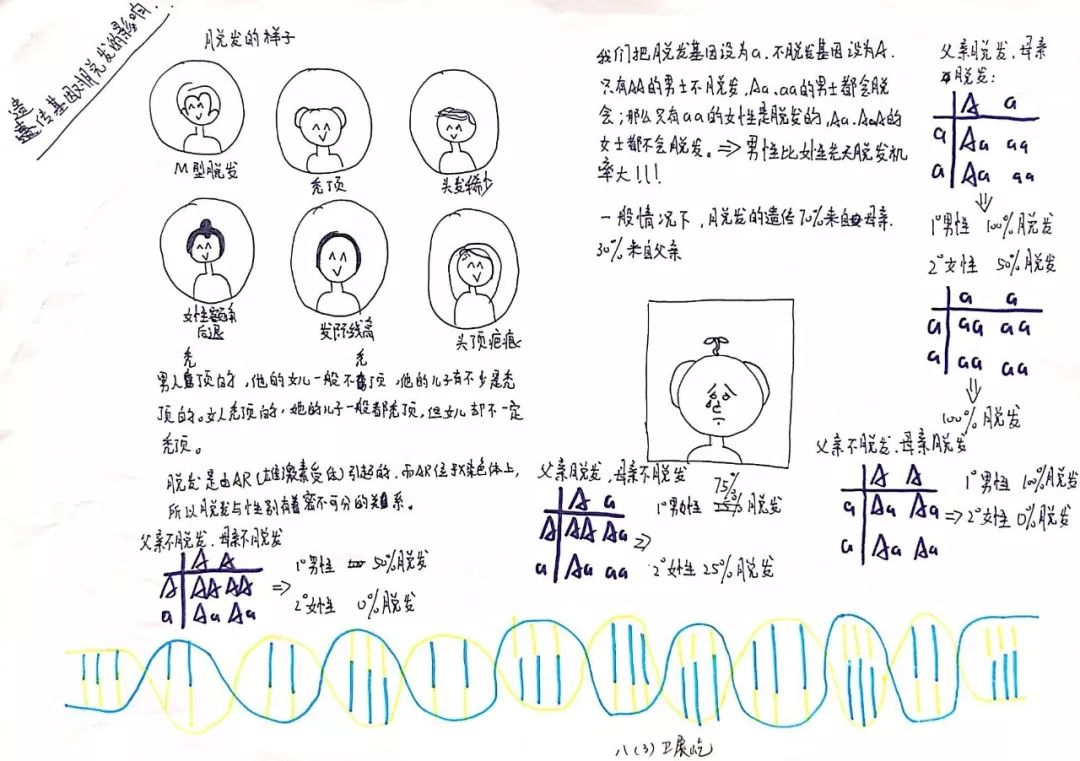 遗传基因对脱发的影响
脱发的样子
M型脱发
秃顶
头发稀少
女性额角
后退
发际线高
头顶疤痕
男人秃顶的，他的女儿一般不秃顶，他的儿子有不少是秃
顶的。女人秃顶的，她的儿子一般都秃顶，但女儿却不一定
秃顶。
脱发是由AR（雄激素受体）引起的，而AR位于X染色体上，
所以脱发与性别有着密不可分的关系。
父亲不脱发，母亲不脱发
A A
A AA AA
a Aa Aa
⇒
1°男性 50%脱发
2°女性 0%脱发
我们把脱发基因设为a，不脱发基因设为A，
只有AA的男士不脱发，Aa、aa的男士都会脱
会；那么只有aa的女性是脱发的，Aa、AA的
女士都不会脱发。⇒男性比女性先天脱发机
率大！！！
一般情况下，脱发的遗传70%来自母亲，
30%来自父亲
父亲脱发，母亲不脱发
A a
A AA Aa
a Aa aa
⇒
1°男性 75% 脱发
2°女性 25%脱发
父亲脱发，母亲
脱发：
A a
a Aa aa
a Aa aa
⇓
1°男性 100%脱发
2°女性 50%脱发
a a
a aa aa
a aa aa
⇓
100%脱发
父亲不脱发，母亲脱发
A A
a Aa Aa
a Aa Aa
⇒
1°男性 100%脱发
2°女性 0%脱发
八（3）卫展屹